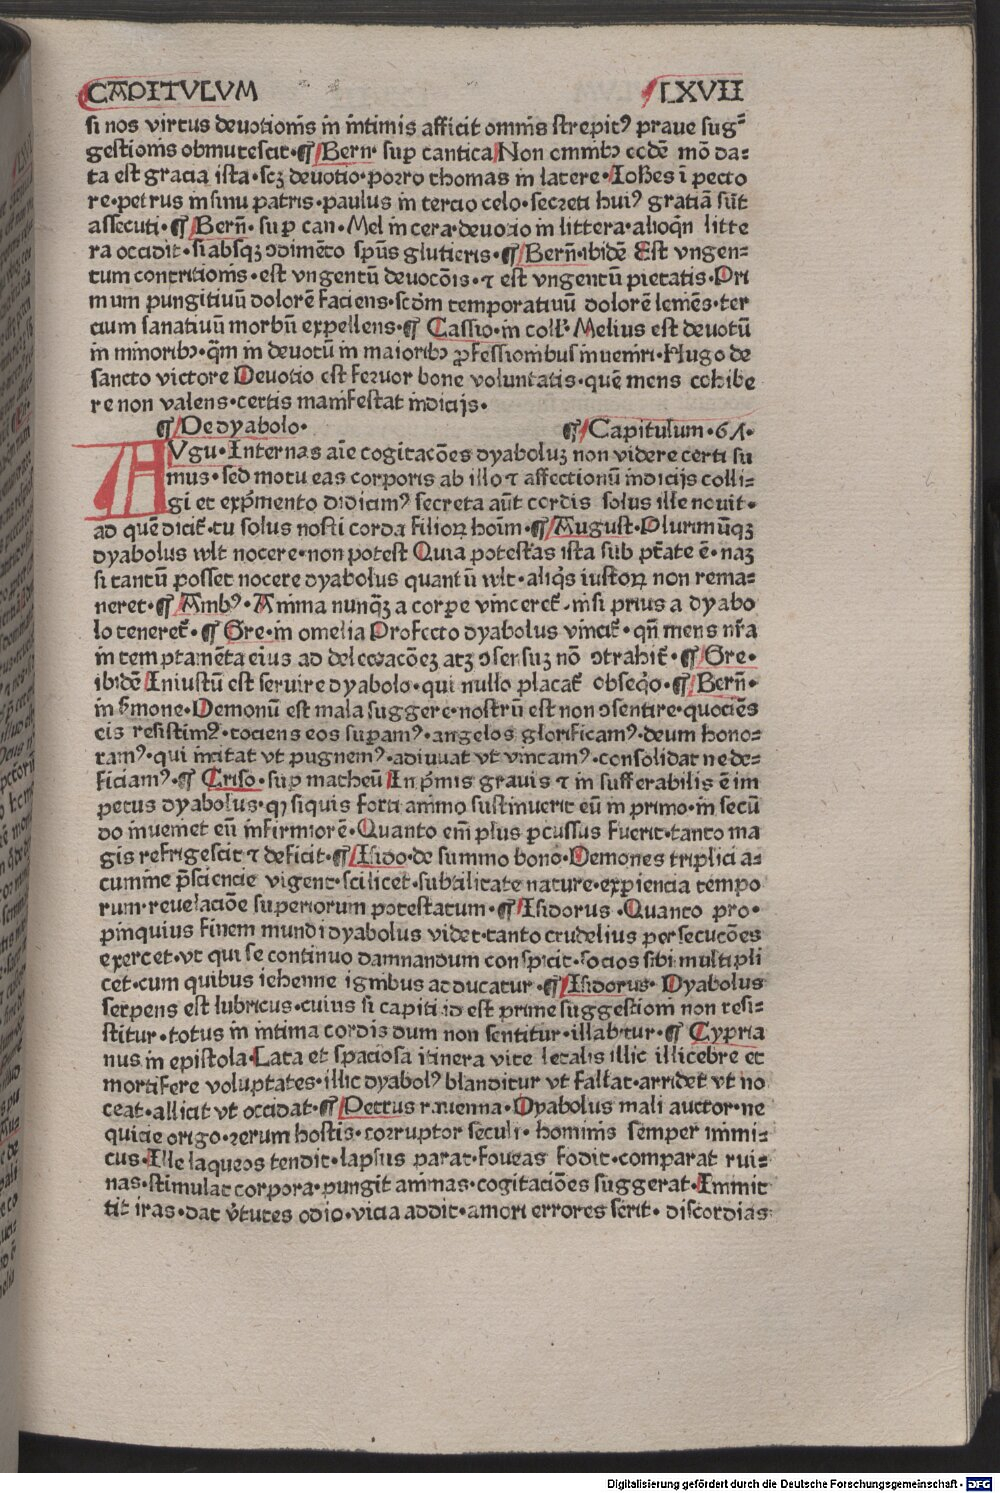 CAPITULUM LXVII
si nos virtus deuotionis in intimis afficit omnis strepitꝰ praue sug⸗
gestionis obmutescit·¶ Bern· suꝑ cantica Non omnibꝫ eodē mō da⸗
ta est gracia ista·scꝫ deuotio·porro thomas in latere·Iohēs ī pecto
re·petrus in sinu patris·paulus in tercio celo·secreti huiꝰ gratiā sūt
assecuti·¶ Bern̄·suꝑ can·Mel in cera·deuotio in littera·alioqn̄ litte
ra occidit·si absqꝫ ↄdimēto spūs glutieris·¶ Bern̄·ibidē Est vngen⸗
tum contritionis·est vngentū deuocōis·⁊ est vngentū pietatis·Pri
mum pungitiuū dolorē faciens·scdm̄ temporatiuū dolorē leniēs·ter
cium sanatiuū morbū expellens·¶ Cassio·in coll̄·Melius est deuotū
in minoribꝫ·qm̄ in deuotū in maioribꝫ ꝓfessionibus inueniri·Hugo de
sancto victore Deuotio est feruor bone voluntatis·quē mens cohibe
re non valens·certis manifestat indicijs·
¶ De dyabolo· ¶ Capitulum·61·
AVgu·Internas aīe cogitacōes dyabolūꝫ non videre certi su
mus·sed motu eas corporis ab illo ⁊ affectionū indicijs colli⸗
gi et exp̄mento didicimꝰ secreta aūt cordis solus ille nouit·
ad quē dicit̄·tu solus nosti corda filioꝝ hoīm·¶ August·Plurimūqꝫ
dyabolus wlt nocere·non potest Quia potestas ista sub ptāte ē·naꝫ
si tantū posset nocere dyabolus quantū wlt·aliqīs iustoꝝ non rema⸗
neret·¶ Ambꝰ·Anima nunqꝫ a corpe vinceret̄·nisi prius a dyabo
lo teneret̄·¶ Gre·in omelia Profecto dyabolus vincit̄·qn̄ mens nr̄a
in temptamēta eius ad delectacōeꝫ atqꝫ ↄsensuꝫ nō ↄtrahit̄·¶ Gre·
ibidē Iniustū est seruire dyabolo·qui nullo placat̄ obseqͦo·¶ Bern̄·
in sermone·Demonū est mala suggere·nostrū est non ↄsentire·quociēs
eis resistimꝰ·tociens eos suꝑamꝰ·angelos glorificamꝰ·deum hono⸗
ramꝰ·qui incitat vt pugnemꝰ·adiuuat vt vincamꝰ·consolidat ne de⸗
ficiamꝰ·¶ Criso·suꝑ matheū In p̄mis grauis ⁊ in sufferabilis ē im
petus dyabolus·qꝫ si quis forti animo sustinuerit eū in primo·in secū
do inueniet eū infirmiorē·Quanto em̄ plus ꝑcussus fuerit·tanto ma
gis refrigescit ⁊ deficit·¶ Isido·de summo bono·Demones triplici a⸗
cumine p̄sciencie vigent·scilicet·subtilitate nature·expiencia tempo
rum·reuelaciōe superiorum potestatum·¶ Isidorus·Quanto pro⸗
pinquius finem mundi dyabolus videt·tanto crudelius persecucōes
exercet·vt qui se continuo damnandum conspicit·socios sibi multipli
cet·cum quibus iehenne ignibus adducatur·¶ Isidorus·Dyabolus
serpens est lubricus·cuius si capiti id est prime suggestioni non resi⸗
stitur·totus in intima cordis dum non sentitur·illabitur·¶ Cypria
nus in epistola·Lata et spaciosa itinera vite letalis illic illicebre et
mortifere voluptates·illic dyabolꝰ blanditur vt fallat·arridet vt no
ceat·allicit vt occidat·¶ Petrus rauenna·Dyabolus mali auctor·ne
quicie origo·rerum hostis·corruptor seculi·hominis semper inimi⸗
cus·Ille laqueos tendit·lapsus parat·foueas fodit·comparat rui⸗
nas·stimulat corpora·pungit animas·cogitaciōes suggerat·Immit
tit iras·dat v̄tutes odio·vicia addit·amori errores serit·discordias
Digitalisierung gefördert durch die Deutsche Forschungsgemeinschaft · DFG